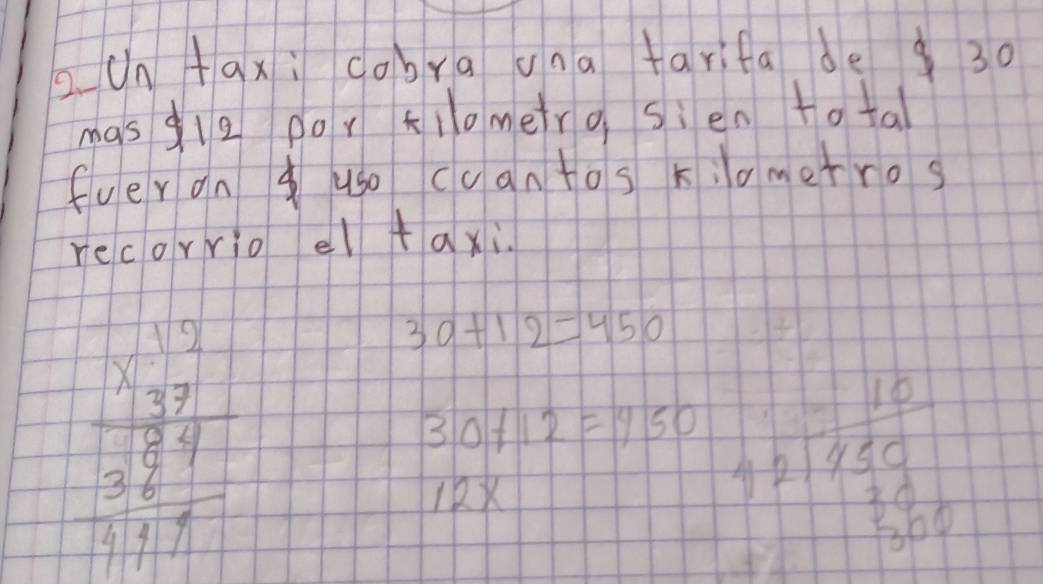 2- Un taxi cobra una tarifa de $ 30
mas $12 por kilometro, si en total
fueron $ 450 cuantos kilometros
recorrio el taxi.
12
x 37
84
36
444
30+12=450
30+12=450
12x
10
42 450
30
300